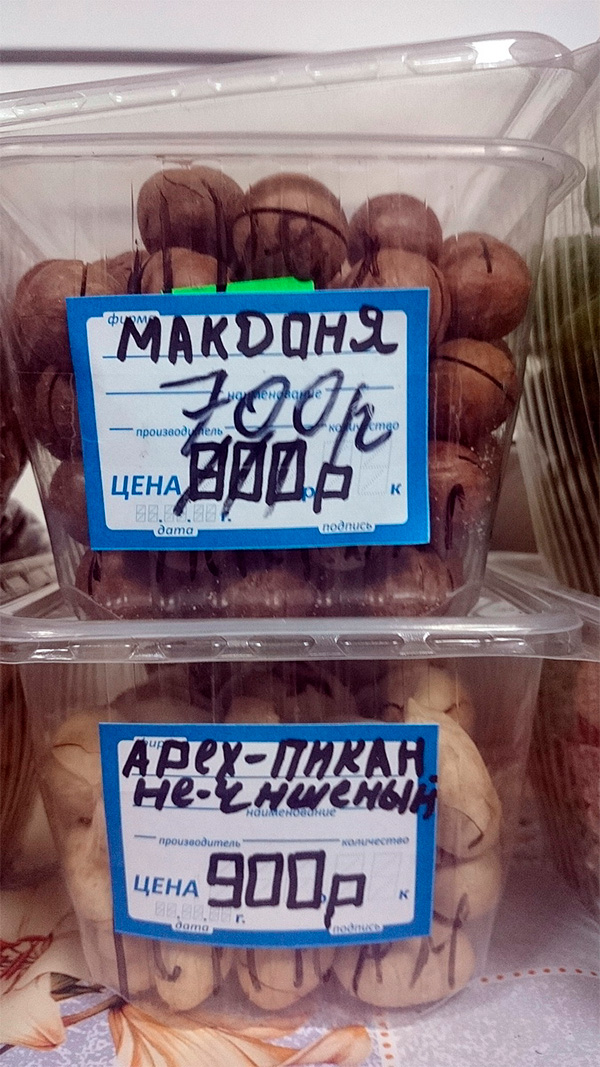 фирма
МАКДОНЯ
700р
наименование
производитель количество
ЦЕНА 800р к
г.
дата подпись
АРЕХ-ПИКАН
не-чишеный
наименование
производитель количество
ЦЕНА 900р к
г.
дата подпись